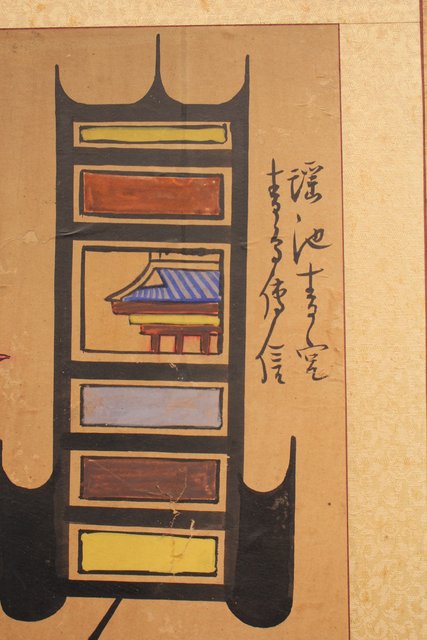 瑶池青
青鳥傳信